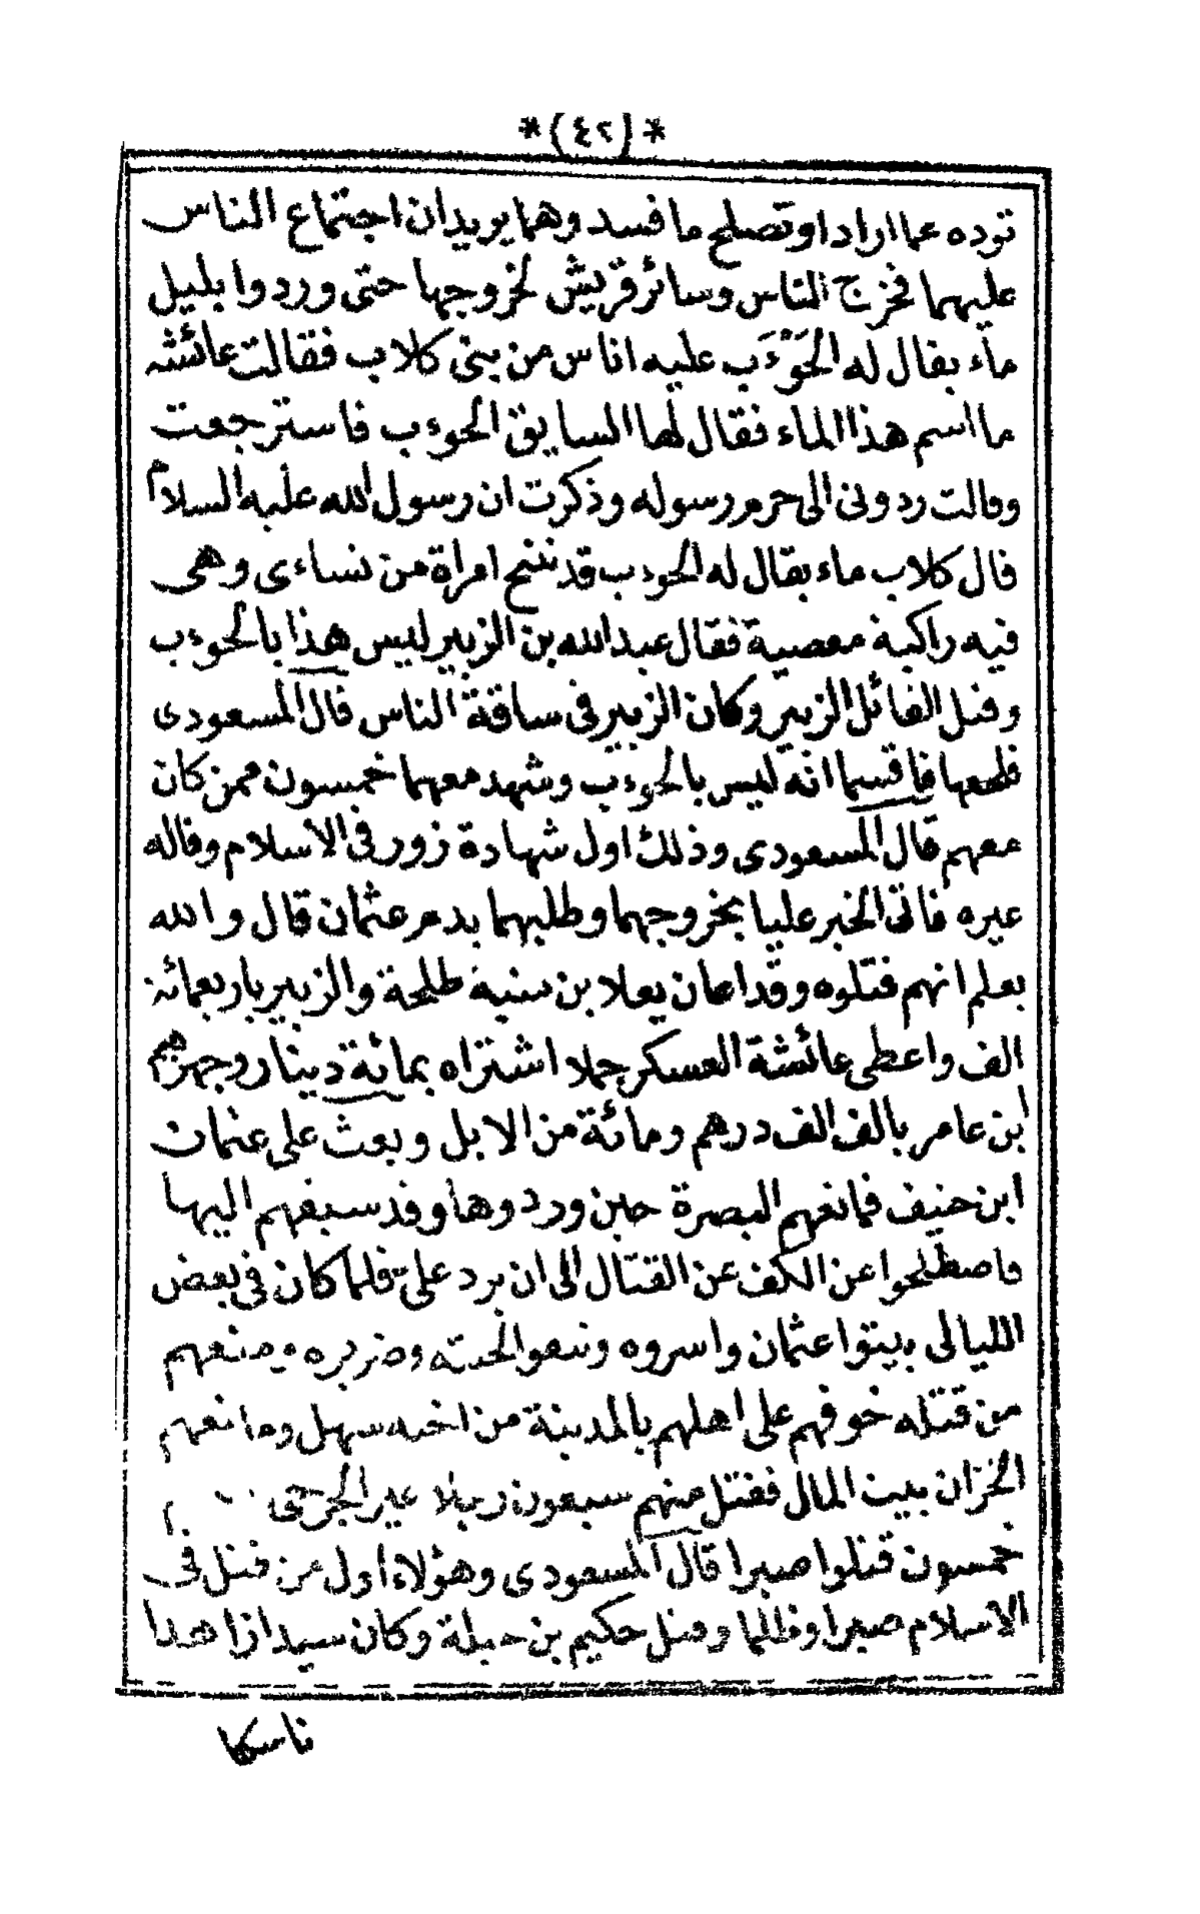 *(٤٢)*
توده عما ارادا وتصلح ما فسد وهما يريدان اجتماع الناس
عليهما فخرج الناس وسائر قريش لخروجها حتى وردوا بليل
ماء يقال له الحَوْءَب عليه اناس من بنى كلاب فقالت عائشه
ما اسم هذا الماء فقال لها السايق الحوءب فاسترجعت
وقالت ردونى الى حرم رسوله وذكرت ان رسول الله عليه السلام
قال كلاب ماء يقال له الحوءب قد تنبح امراة من نساءى وهى
فيه راكبة معصية فقال عبد الله بن الزبير ليس هذا بالحوءب
وقيل القائل الزبير وكان الزبير فى ساقة الناس قال المسعودى
فلحعها فاقسما انه ليس بالحوءب وشهد معهما خمسون ممن كان
معهم قال المسعودى وذلك اول شهادة زور فى الاسلام وقاله
غيره فاتى الخبر عليا بخروجهما وطلبهما بدم عثمان قال والله
يعلم انهم قتلوه وقد اعان يعلا بن منية طلحة والزبير باربعمائة
الف واعطى عائشة العسكر جملا اشتراه بمائة دينار وجهزهم
ابن عامر بالف الف درهم ومائة من الابل وبعث على عثمان
ابن حنيف فمانعهم البصرة حين وردوها وقد سبقهم اليها
فاصطلحوا عن الكف عن القتال الى ان يرد على فلما كان فى بعض
الليالى بيتوا عثمان واسروه ونتفوا لحيته وضربوه ومنعهم
من قتله خوفهم على اهلهم بالمدينة من اخيه سهل ومانعهم
الخزان بيت المال فقتل منهم سبعون رجلا غير الجرحى
خمسون قتلوا صبرا قال المسعودى وهؤلاء اول من قتل فى
الاسلام صبرا وظلما وقتل حكيم بن جبلة وكان سيدا زاهدا
ناسكا